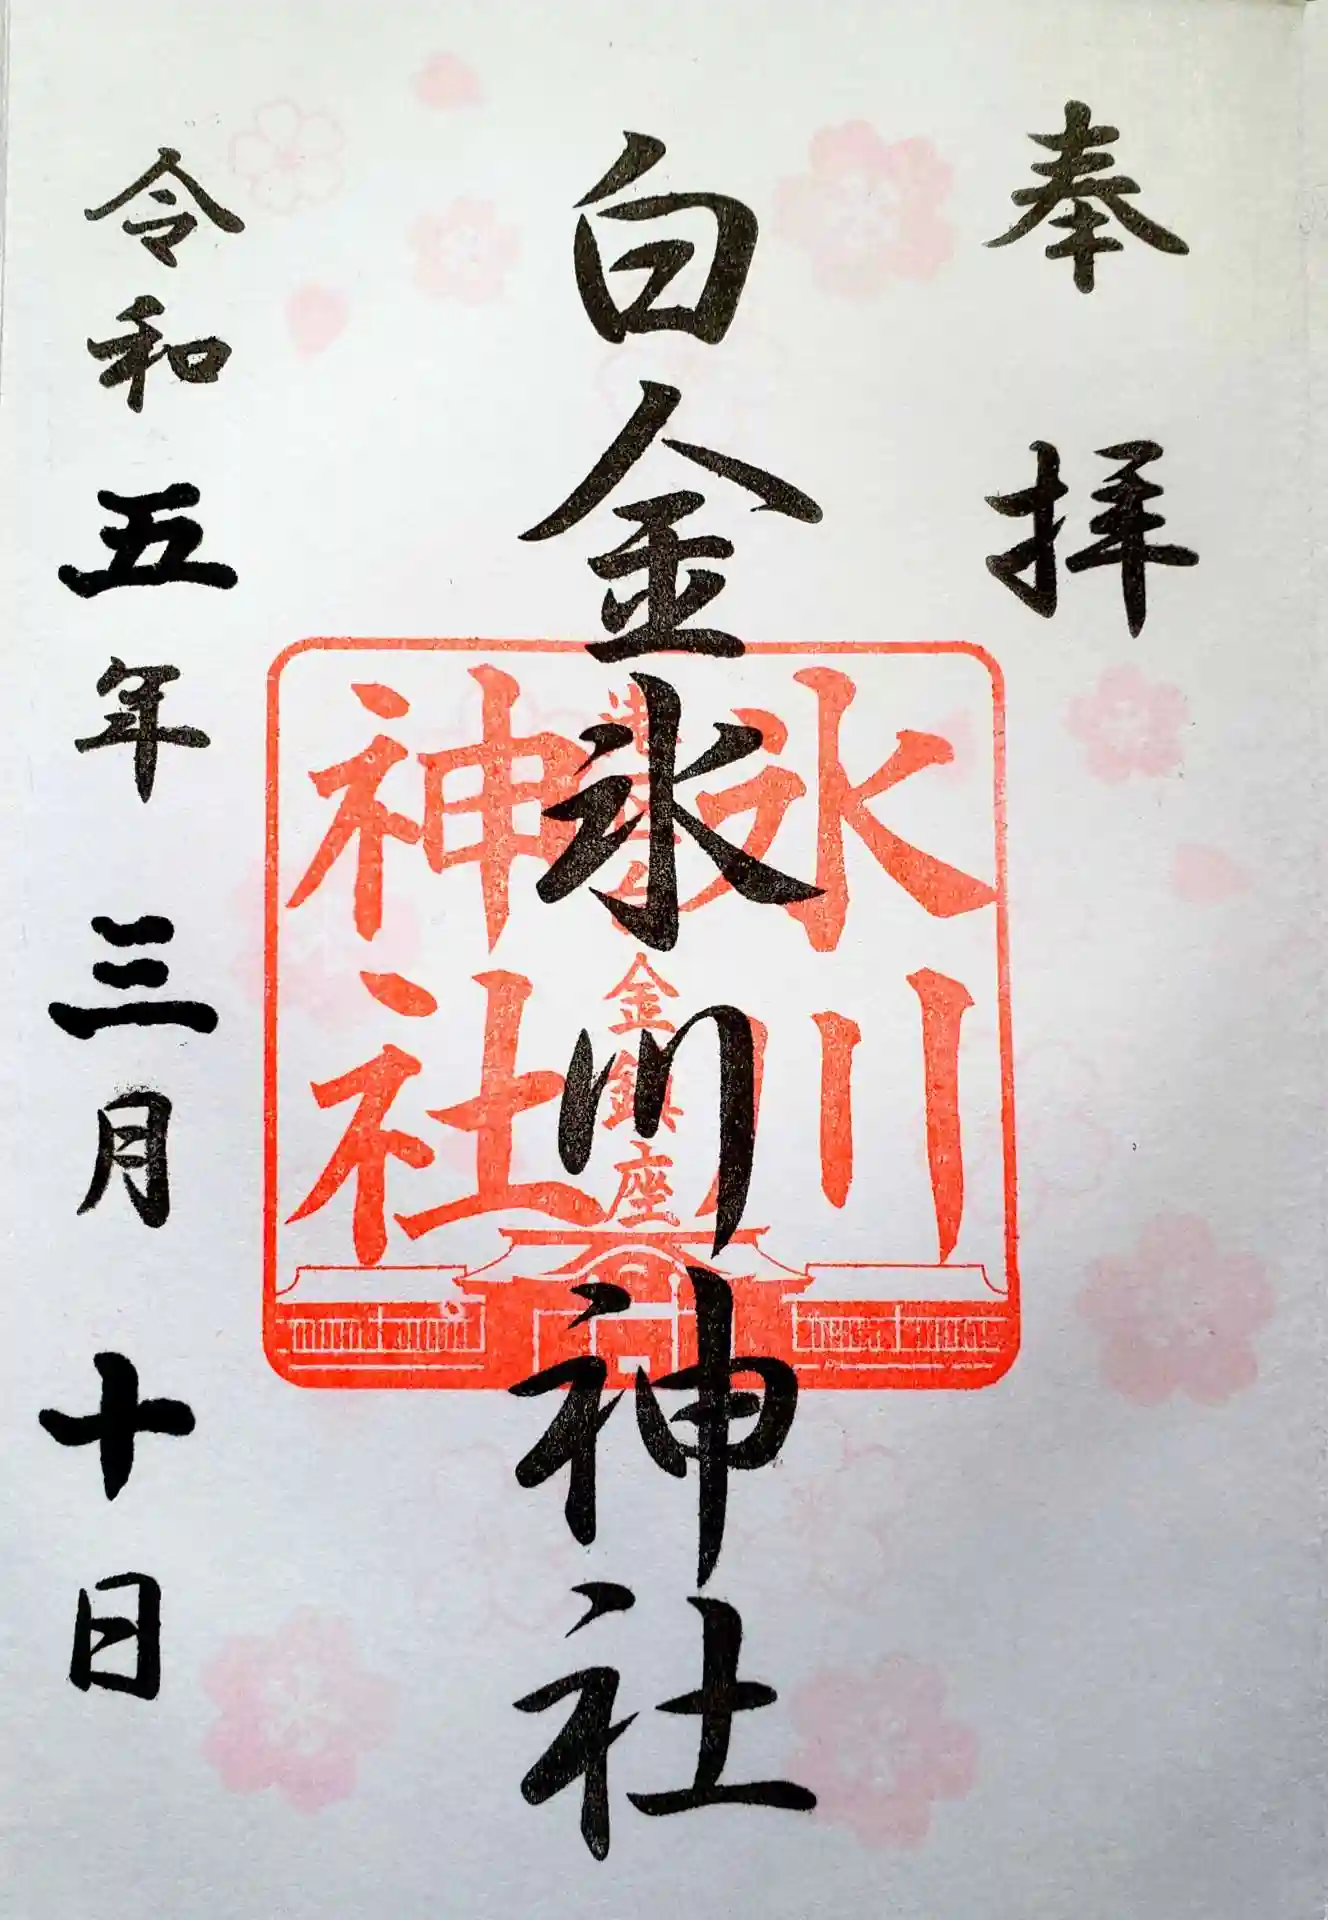 奉拝
白金氷川神社
氷川
港区白金鎮座
神社
令和五年三月十日